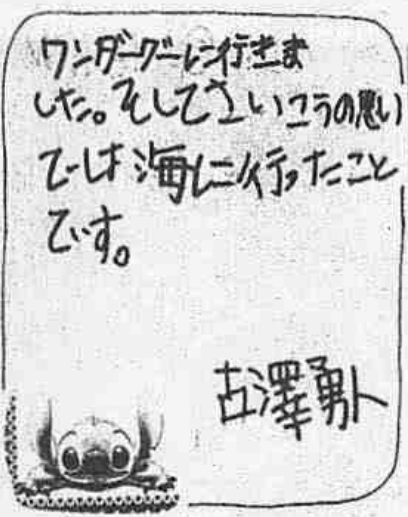 ワンダーグーに行きま
した。そしてさいこうの思い
では海に行ったこと
です。
古澤勇人